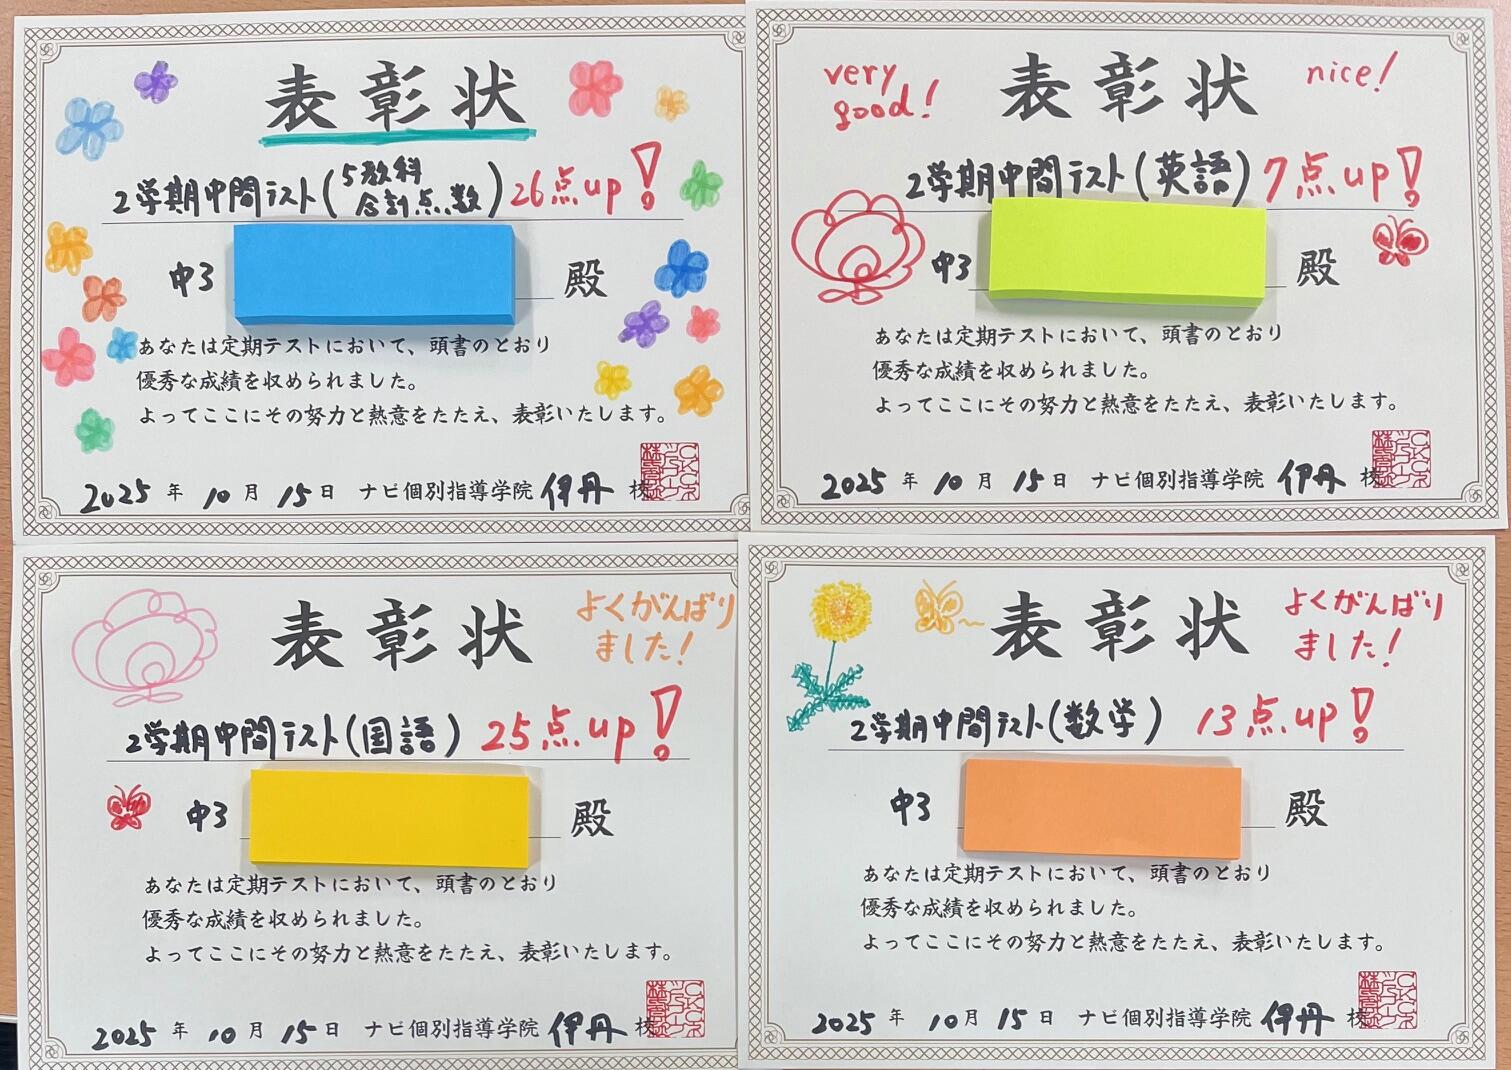 表彰状
2学期中間テスト(5教科合計点数) 26点up!
中3 殿
あなたは定期テストにおいて、頭書のとおり
優秀な成績を収められました。
よってここにその努力と熱意をたたえ、表彰いたします。
2025年10月15日 ナビ個別指導学院 伊丹 校
very good!
表彰状
nice!
2学期中間テスト(英語) 7点up!
中3 殿
あなたは定期テストにおいて、頭書のとおり
優秀な成績を収められました。
よってここにその努力と熱意をたたえ、表彰いたします。
2025年10月15日 ナビ個別指導学院 伊丹 校
表彰状
よくがんばり
ました!
2学期中間テスト(国語) 25点up!
中3 殿
あなたは定期テストにおいて、頭書のとおり
優秀な成績を収められました。
よってここにその努力と熱意をたたえ、表彰いたします。
2025年10月15日 ナビ個別指導学院 伊丹 校
表彰状
よくがんばり
ました!
2学期中間テスト(数学) 13点up!
中3 殿
あなたは定期テストにおいて、頭書のとおり
優秀な成績を収められました。
よってここにその努力と熱意をたたえ、表彰いたします。
2025年10月15日 ナビ個別指導学院 伊丹 校